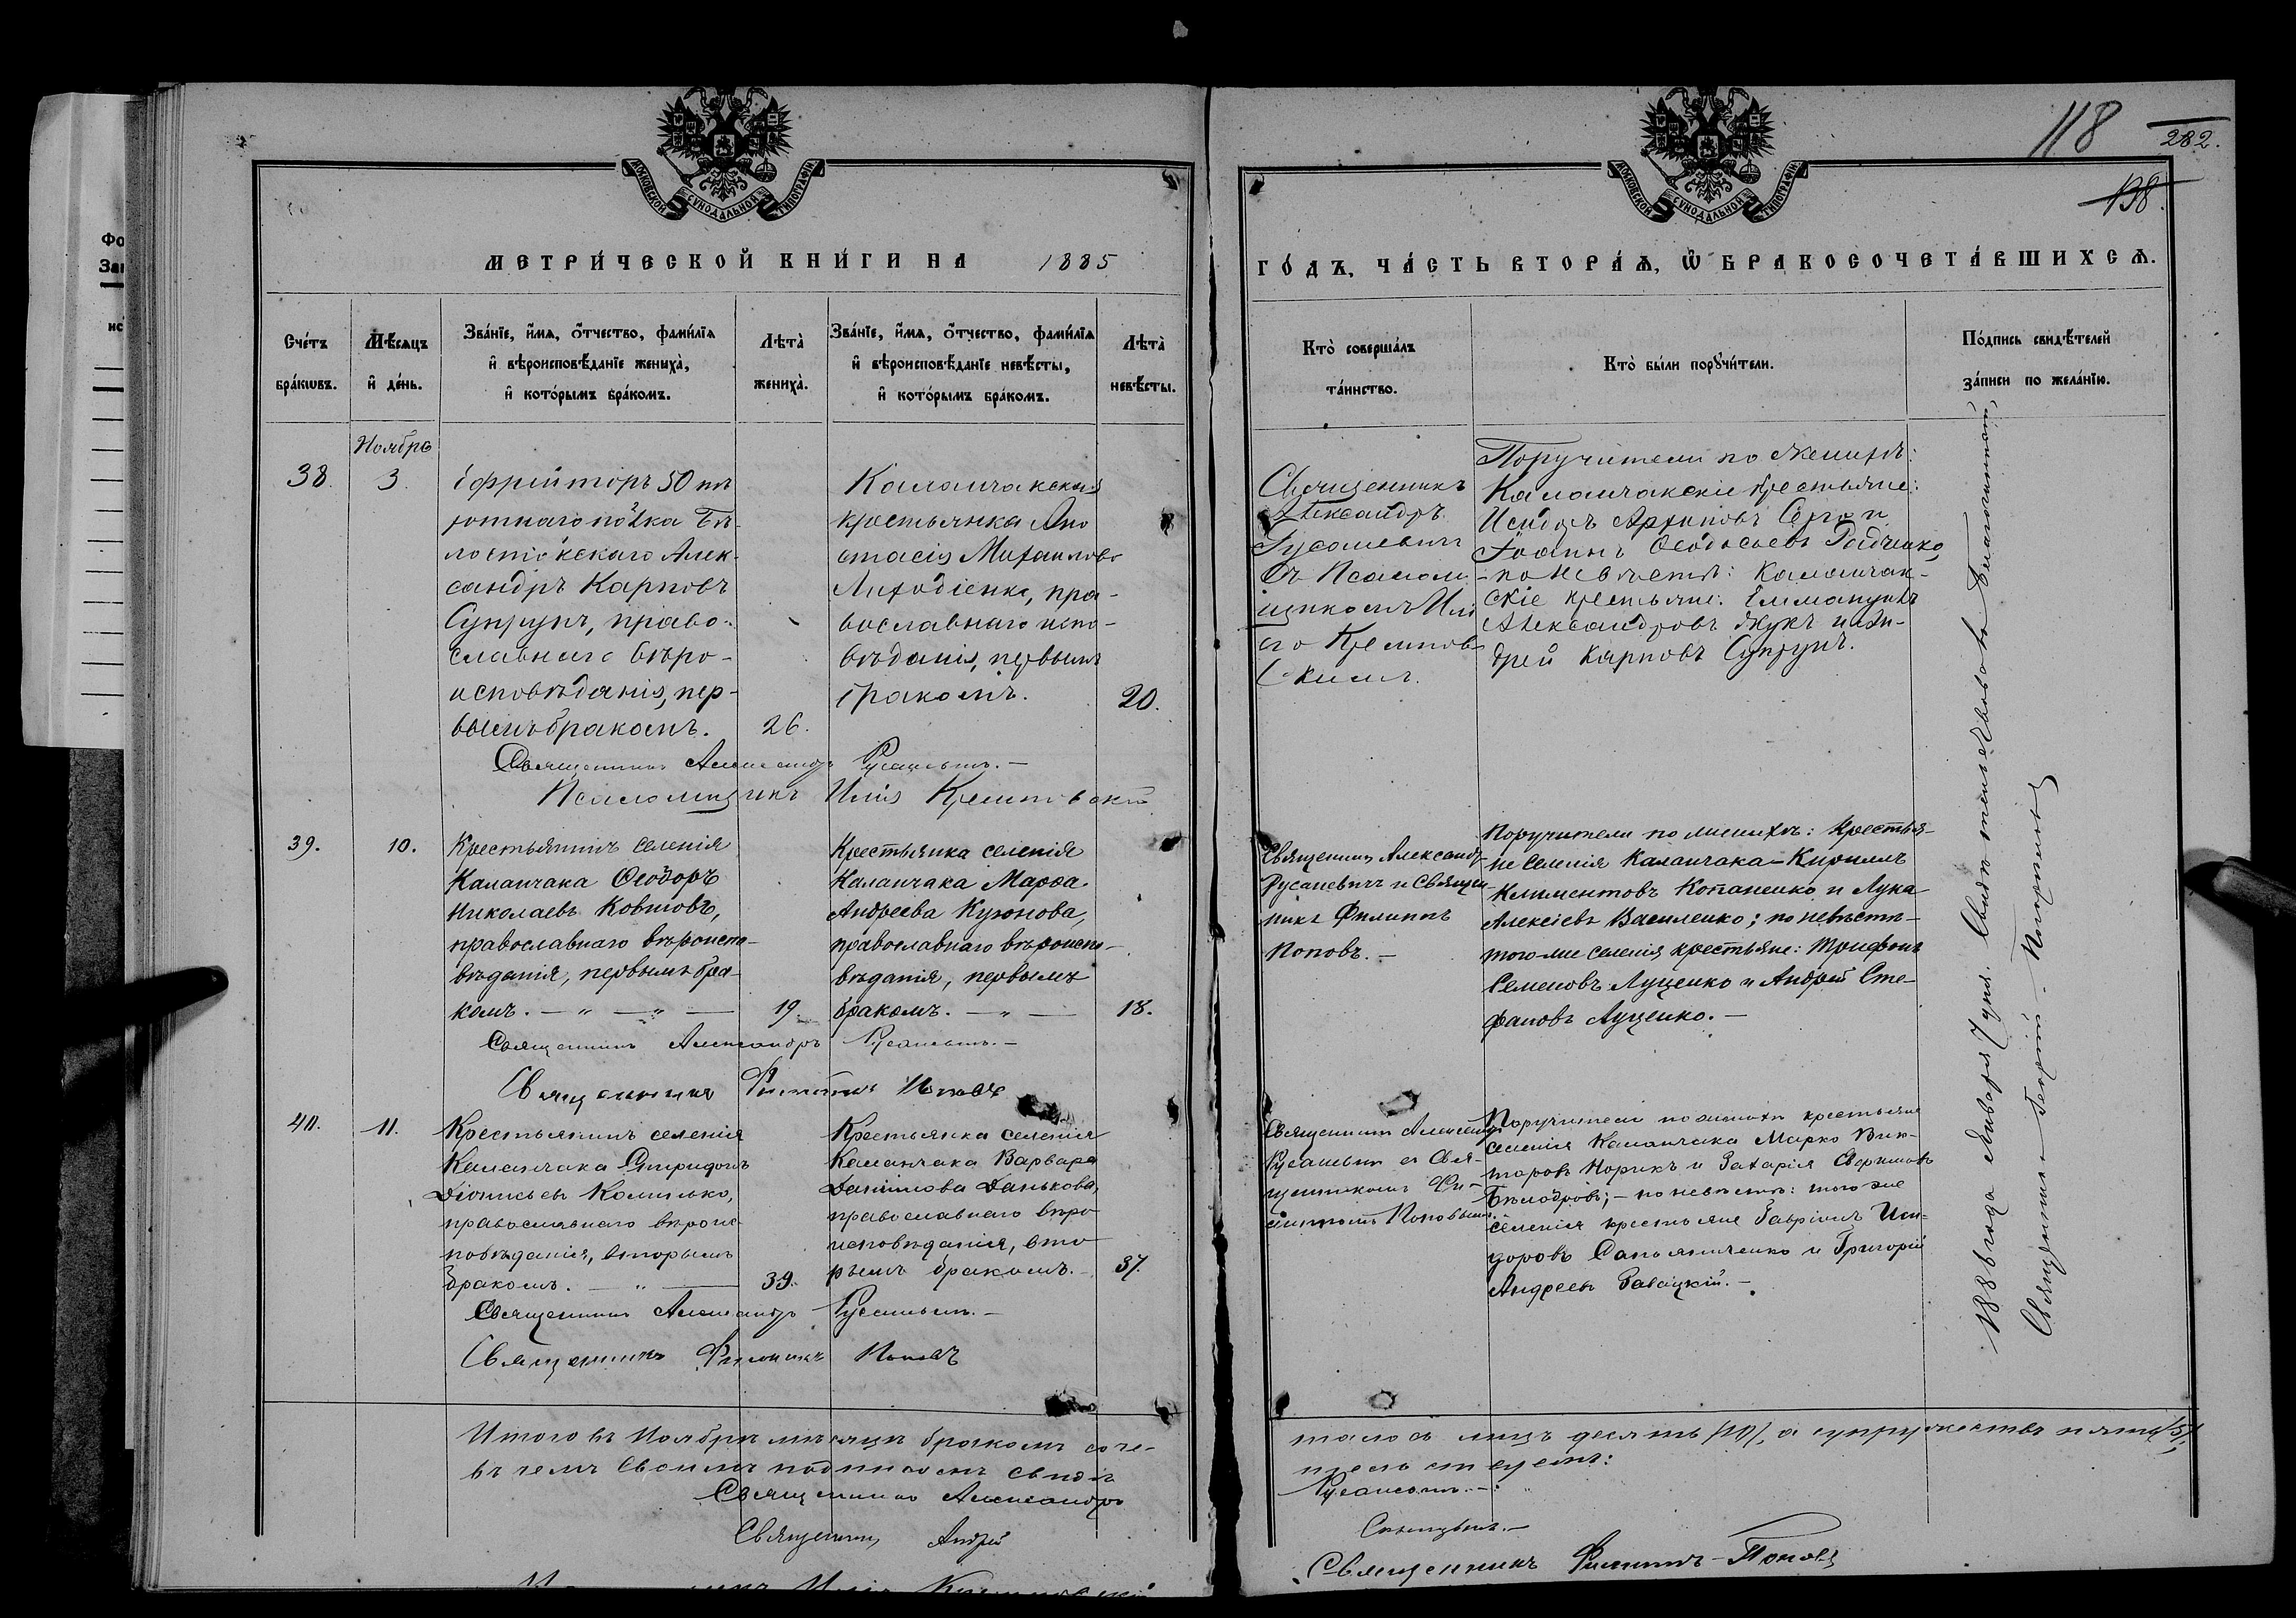 118
282.
138.
МОСКОВСКОЙ СѴНОДАЛЬНОЙ ТИПОГРАФІИ
МОСКОВСКОЙ СѴНОДАЛЬНОЙ ТИПОГРАФІИ
МЕТРИ́ЧЕСКОЙ КНИ́ГИ НА 1885
ГО́ДЪ, ЧА́СТЬ ВТОРА́Ѧ, Ѿ БРАКОСОЧЕТА́ВШИХСѦ.
Сче́тъ
бра́кѡвъ.
Мѣ́сяцъ
и҆ де́нь.
Зва́нїе, и҆́мѧ, ѻ҆́тчество, фами́лїѧ
и҆ вѣроисповѣ́данїе жениха̀,
и҆ кото́рымъ бра́комъ.
Лѣта̀
жениха̀.
Зва́нїе, и҆́мѧ, ѻ҆́тчество, фами́лїѧ
и҆ вѣроисповѣ́данїе невѣ́сты,
и҆ кото́рымъ бра́комъ.
Лѣта̀
невѣ́сты.
Кто̀ соверша́лъ
та́инство.
Кто̀ бы́ли порꙋчи́тели.
По́дпись свидѣ́телей
за́писи по жела́нїю.
Ноября
38.
3.
Ефрейторъ 50 пѣ
хотнаго полка Бѣ-
лостокскаго Алек-
сандръ Карповъ
Супрунъ, право-
славнаго вѣро-
исповѣданія, пер-
вымъ бракомъ.
26.
Каланчакская
крестьянка Ана
стасія Михаилова
Лиходіенко, пра-
вославнаго испо-
вѣданія, первымъ
бракомъ.
20.
Священникъ
Александръ
Русаневичъ
съ Псалом
щикомъ Илі
ею Кремпов
скимъ.
Поручители по женихѣ:
Каланчакскіе крестьяне:
Исидоръ Архиповъ
Іоаннъ Ѳеодосьевъ
-по невѣстѣ: Каланчак-
скіе крестьяне: Еммануилъ
Александровъ Жукъ и Ан-
дрей Карповъ Супрунъ.
Священникъ Александръ Русаневичъ.-
Псаломщикъ Илія Кремповскій
39.
10.
Крестьянинъ селенія
Каланчака Ѳеодоръ
Николаевъ Ковтовъ,
православнаго вѣроиспо-
вѣданія, первымъ бра-
комъ. — „ — „ —
19.
Крестьянка селенія
Каланчака Марѳа
Андреева Куюнова,
православнаго вѣроиспо-
вѣданія, первымъ
бракомъ. — „ —
18.
Священникъ Александръ
Русаневичъ и Священ-
никъ Филиппъ
Поповъ.-
Поручители по женихѣ: крестья-
не селенія Каланчака-Кириллъ
Климентовъ Копаненко и Лука
Алексѣевъ Василенко; по невѣстѣ-
того-же селенія крестьяне: Трифонъ
Семеновъ Луценко и Андрей Сте-
фановъ Луценко.-
Священникъ Александръ Русаневичъ.-
Священникъ Филиппъ Поповъ
40.
11.
Крестьянинъ селенія
Каланчака Спиридонъ
Діонисьевъ
православнаго вѣроис-
повѣданія, вторымъ
бракомъ. — „ —
39.
Крестьянка селенія
Каланчака Варвара
Даніилова Данькова,
православнаго вѣро
исповѣданія, вто
рымъ бракомъ.-
37.
Священникъ Александръ
Русаневичъ съ Свя-
щенникомъ Фи-
липпомъ Поповымъ.
Поручители по женихѣ крестьяне
селенія Каланчака Марко Вик-
торовъ Норикъ и Захарія
Бѣлодровъ;- по невѣстѣ: того же
селенія крестьяне Гавріилъ Иси-
доровъ и Григорій
Андреевъ Завацкій.-
Священникъ Александръ Русаневичъ.-
Священникъ Филиппъ Поповъ
Итого въ Ноябрѣ мѣсяцѣ бракомъ соче-
талось лицъ десять /10/, а супружествъ пять /5/,
въ чемъ своимъ подписомъ свидѣ
тельствуемъ:
Священникъ Александръ Русаневичъ.-
Священникъ Андрей
Священникъ Филиппъ-Поповъ
1886 года Января 7 дня. Свидѣтельствовалъ Благочинный,
Священникъ Георгій